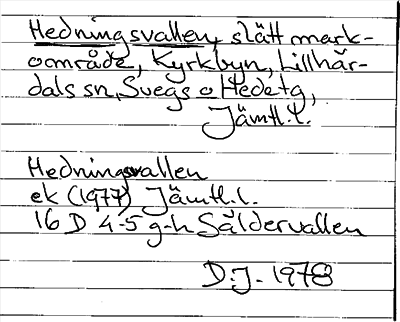 Hedningsvallen, slätt mark-
område, Kyrkbyn, Lillhär-
dals sn, Svegs o Hede tg,
Jämtl.l.
Hedningsvallen
ek (1977) Jämtl.l.
16 D 4-5 g-h Säldervallen
D.J. 1978